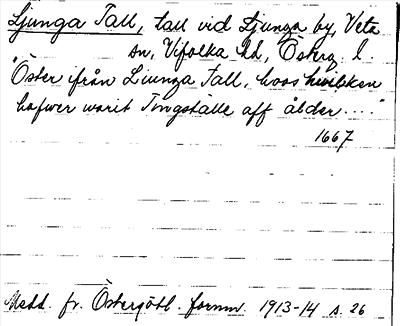 Ljunga Tall, tall vid Ljunga by, Veta
sn, Vifolka hd, Österg l.
"Öster ifrån Liunga Tall, hoos hwilken
hafwer warit Tingställe aff ålder...."
1667
Medd. fr. Östergötl. fornm. 1913-14 s. 26